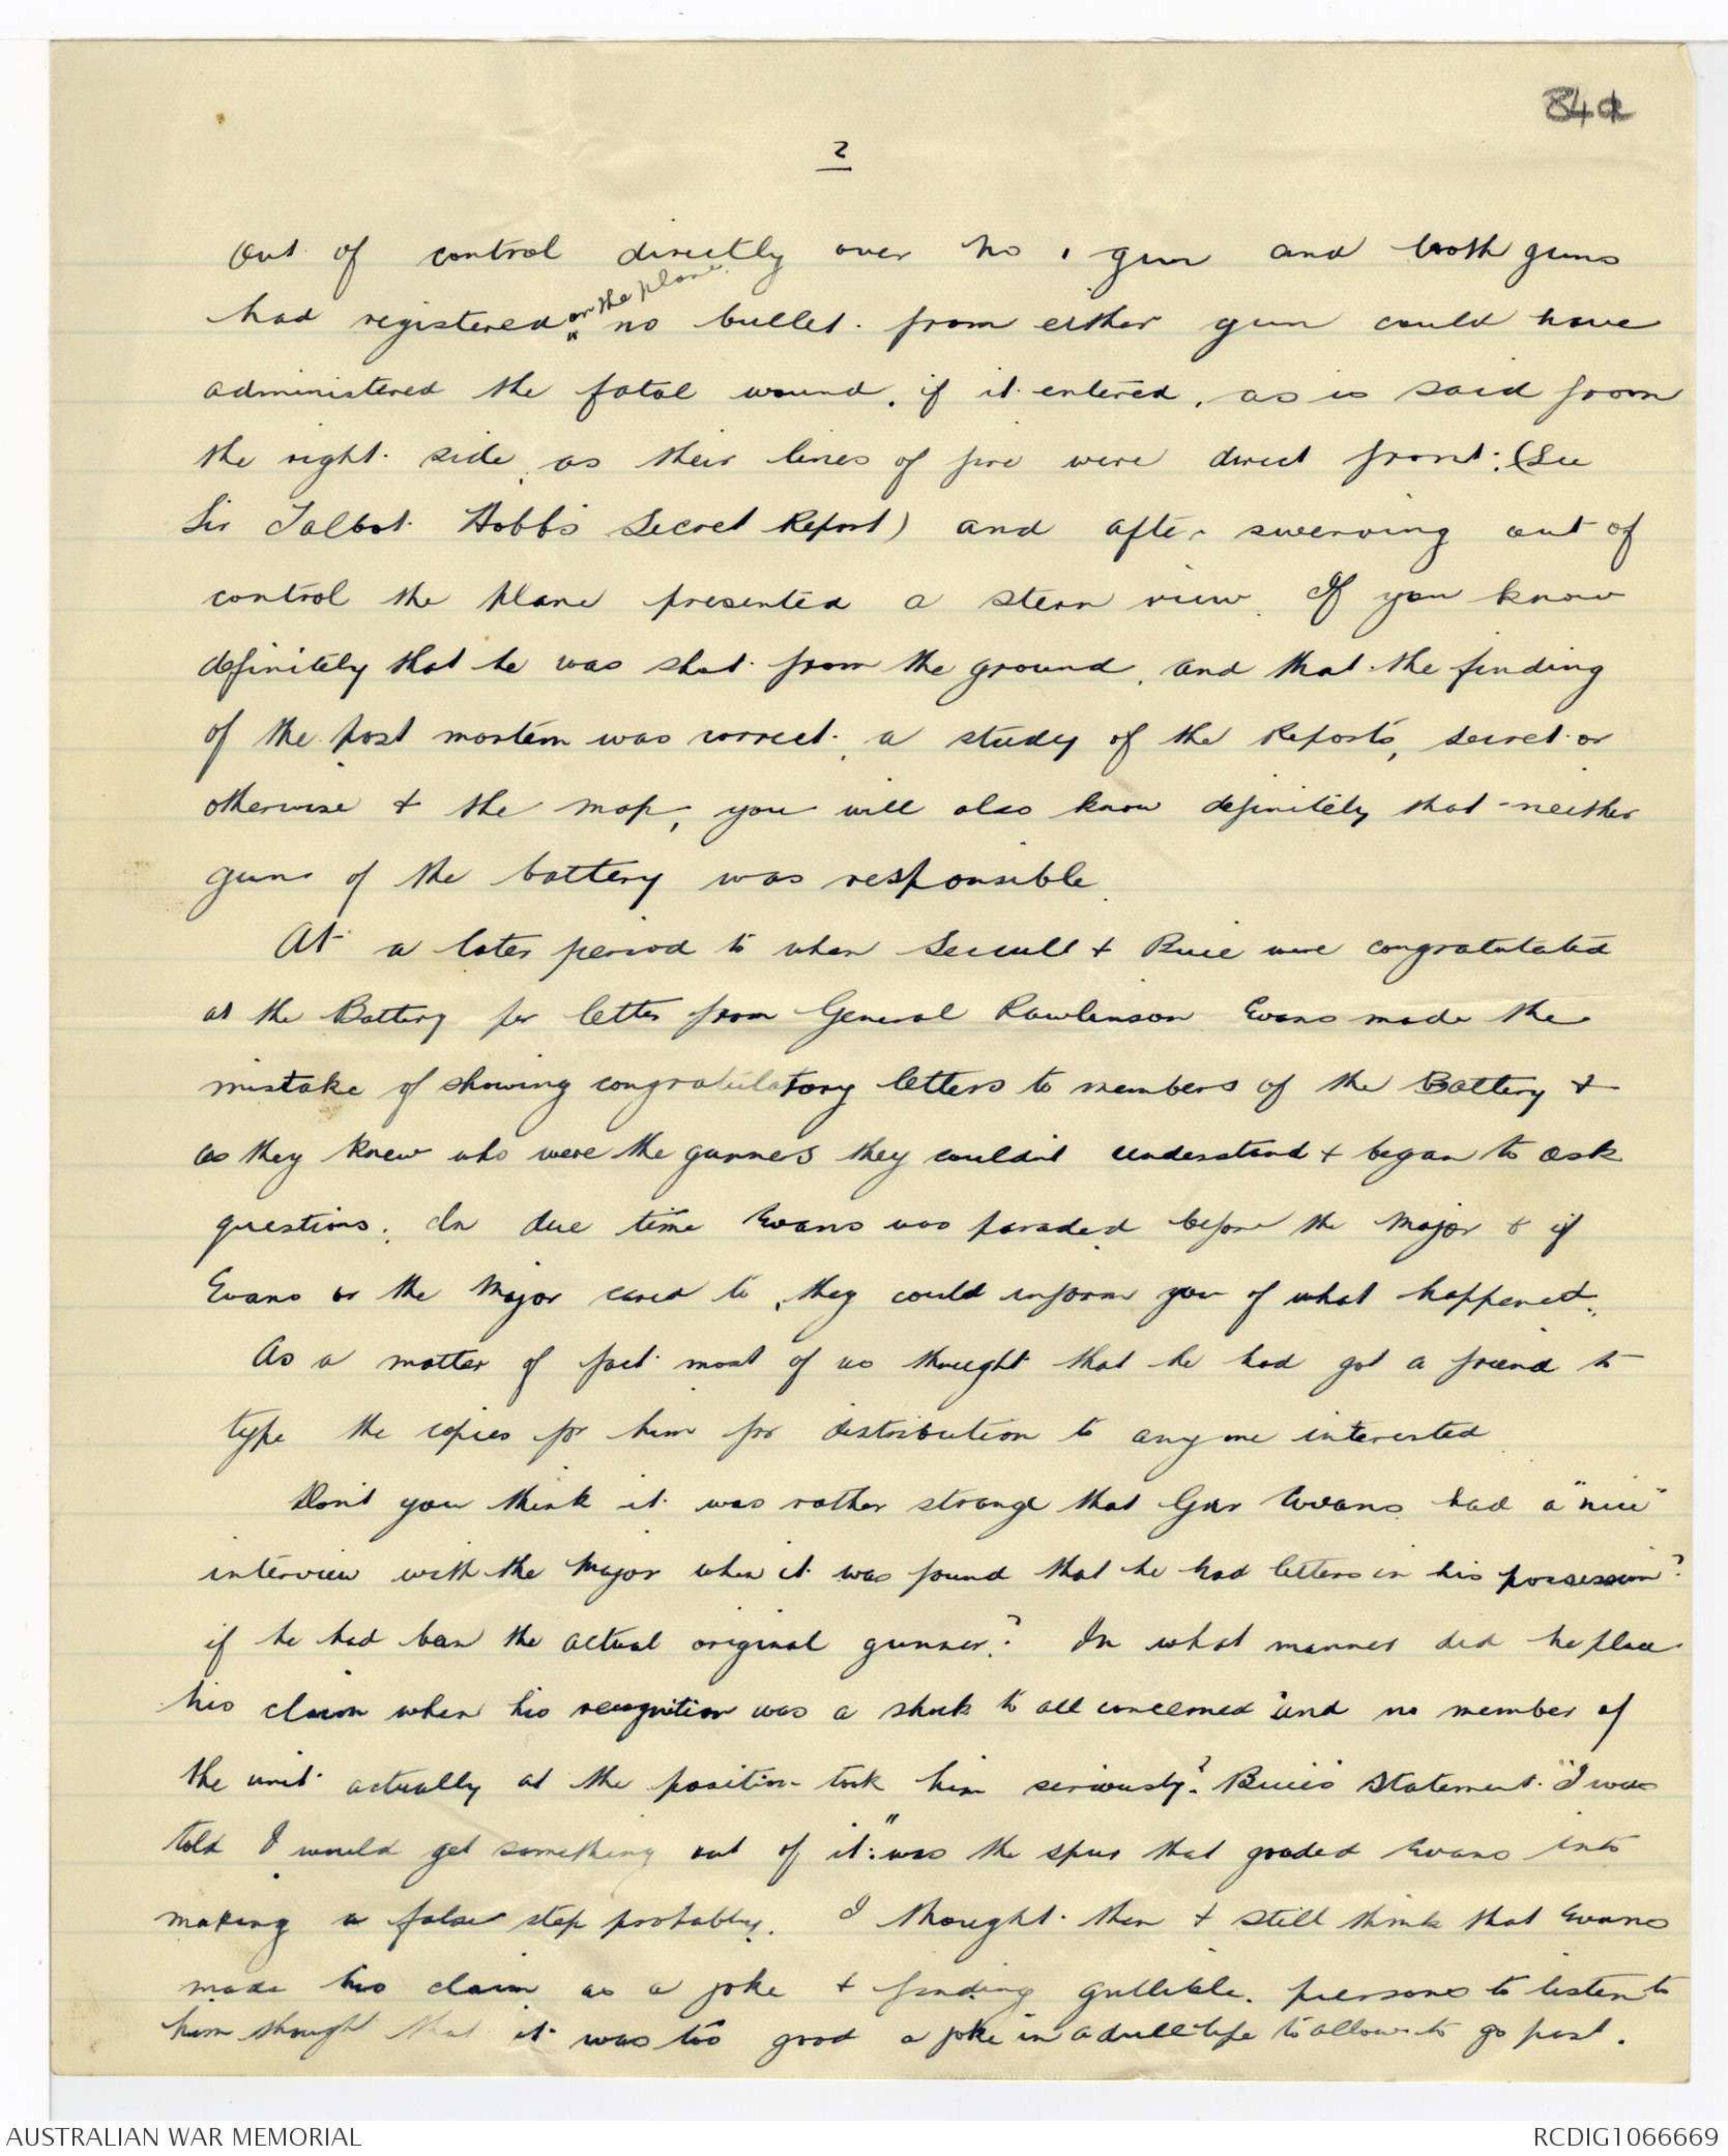 84a
2
Out of control directly over No 1 gun and both guns
had registered on the plane no bullet from either gun could have
administered the fatal wound, if it entered, as is said from
the right side, as their lines of fire were direct front; (See
Sir Talbot Hobb's Secret Report) and after swerving out of
control the plane presented a stern view. If you know
definitely that he was shot from the ground, and that the finding
of the post mortem was correct, a study of the Reports, secret or
otherwise & the map, you will also know definitely that neither
guns of the battery was responsible.
At a later period to when Seccull & Buie were congratulated
at the Battery per letter from General Rawlinson Evans made the
mistake of showing congratulatory letters to members of the Battery &
as they knew who were the gunners they couldn't understand & began to ask
questions. In due time Evans was paraded before the Major & if
Evans or the Major cared to, they could inform you of what happened.
As a matter of fact most of us thought that he had got a friend to
type the copies for him for distribution to any one interested
Don't you think it was rather strange that Gnr Evans had a "nice"
interview with the Major when it was found that he had letters in his possession?
if he had been the actual original gunner? In what manner did he place
his claim when his recognition was a shock to all concerned and no member of
the unit actually at the position took him seriously? Buie's Statement "I was
told I would get something out of it" was the spur that goaded Evans into
making a false step probably. I thought then & still think that Evans
made his claim as a joke & finding gullible persons to listen to
him thought that it was too good a joke in a dull life to allow to go past.
AUSTRALIAN WAR MEMORIAL
RCDIG1066669